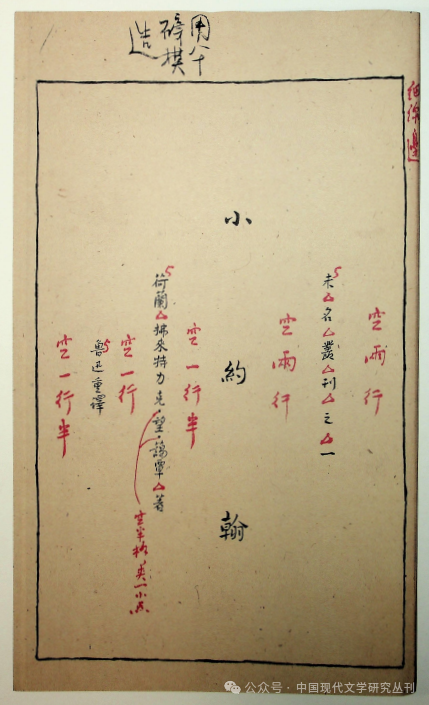 用八十
磅模
造
細線邊
空兩行
5
未△名△叢△刊△之△一
空兩行
小約翰
空一行半
5
荷蘭△拂來特力克·望·藹覃△著
空半格 一小点
空一行
5
魯迅重譯
空一行半
公众号·中国现代文学研究丛刊